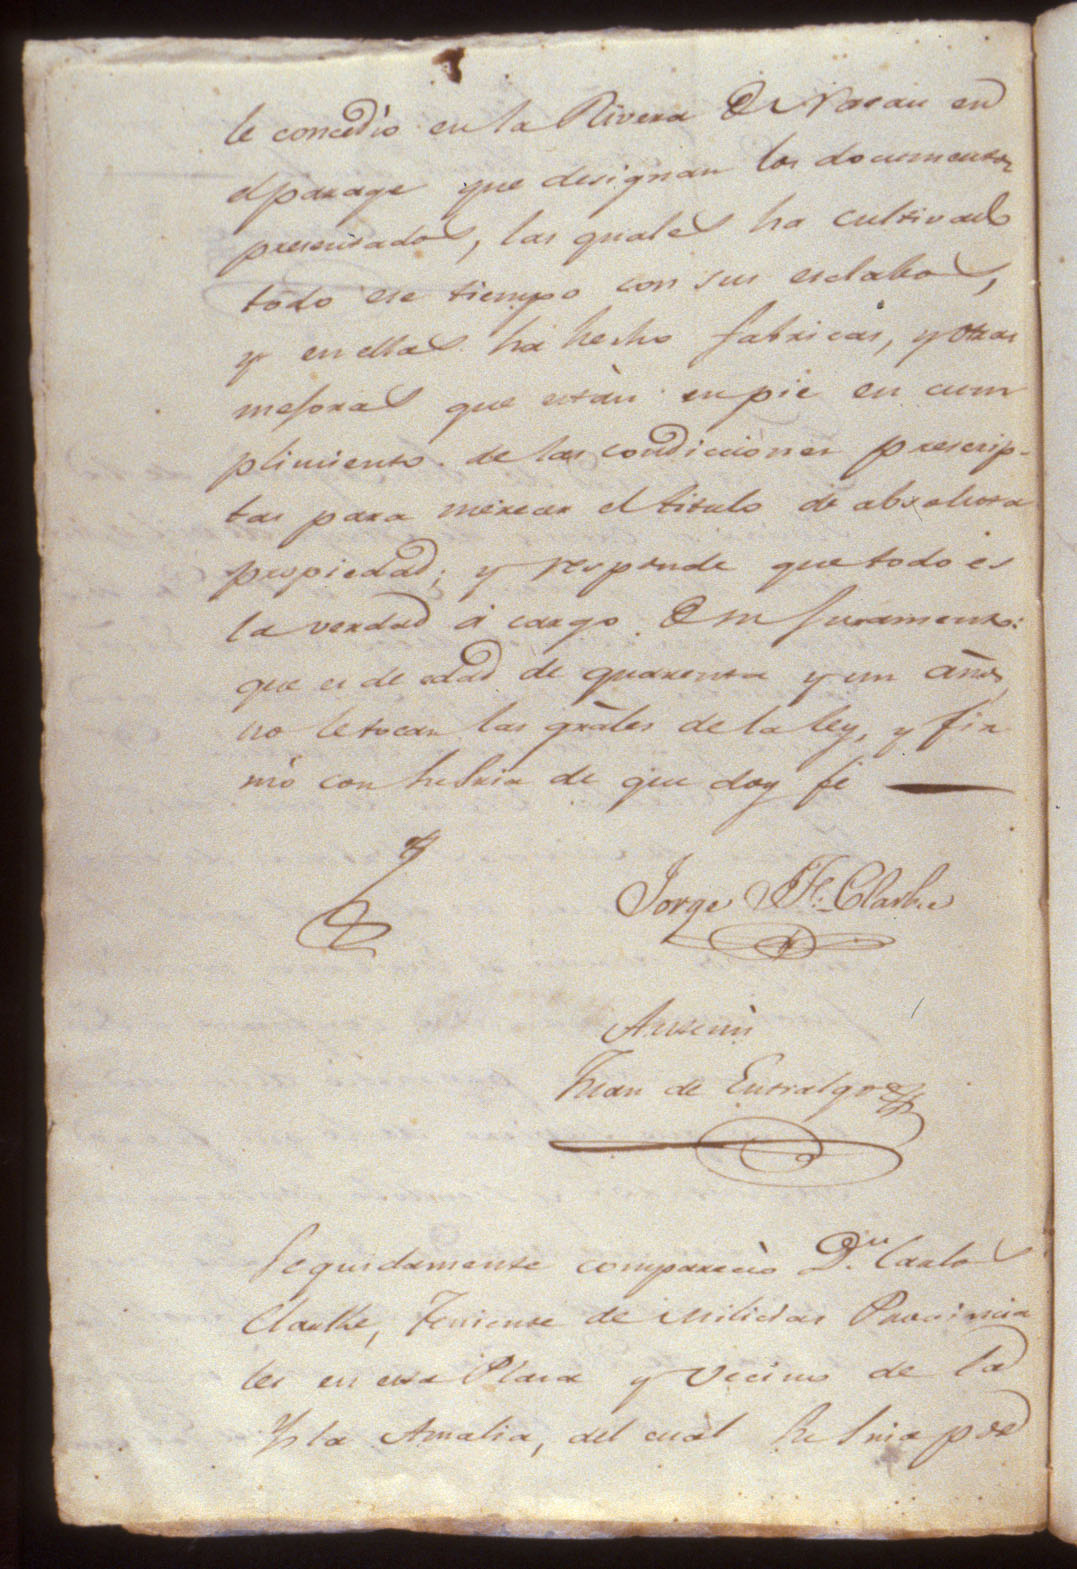 le concedio en la Rivera de Nasau en
el parage que designan los documentos
presentados, las quales ha cultivado
todo ese tiempo con sus esclabos,
y en ellas ha hecho fabricas, y otras
mejoras que están en pie en cum
plimiento de las condicciones prescrip-
tas para merecer el titulo de absoluta
propiedad; y responde que todo es
la verdad á cargo de su juramento:
que es de edad de quarenta y un años,
no le tocan las gràles de la ley, y fir
mó con su Sria de que doy fé
Jorge J. F. Clarke
Ante mi
Juan de Entralgo
Seguidamente compareciò Dn. Carlos
Clarke, Teniente de Milicias Provincia
les en esta Plaza y vecino de la
Ysla Amalia, del cuàl su Sria por